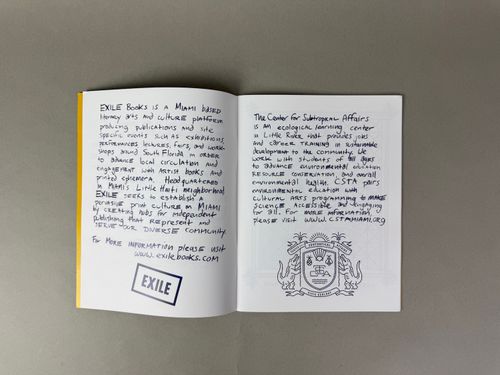 EXILE Books is a Miami based
literary arts and culture platform
producing publications and site
specific events such as exhibitions,
performances, lectures, fairs, and work-
shops around South Florida in order
to advance local circulation and
engagement with artist books and
printed ephemera. Headquartered
in Miami's Little Haiti neighborhood
EXILE seeks to establish a
pervasive print culture in Miami
by creating hubs for independent
publishing that represent and
serve our diverse community.
For more information please visit
www.exilebooks.com
EXILE
The Center for Subtropical Affairs
is an ecological learning center
in Little River that provides jobs
and career training in sustainable
development to the community. We
work with students of all ages
to advance environmental education
resource conservation, and overall
environmental health. CSTA pairs
environmental education with
cultural arts programming to make
science accessible and engaging
for all. For more information,
please visit www.cstamiami.org